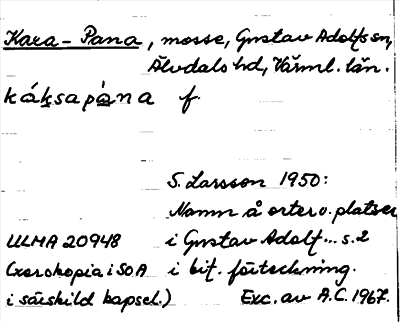 Kara-Pana, mosse, Gustav Adolfs sn,
Älvdals hd, Värml. län.
káksapàna f.
S. Larsson 1950:
Namn å orter o. platser
ULMA 20948 i Gustav Adolf... s. 2
(xerokopia i SOA i bif. förteckning.
i särskild kapsel.) Exc. av A.C. 1967.